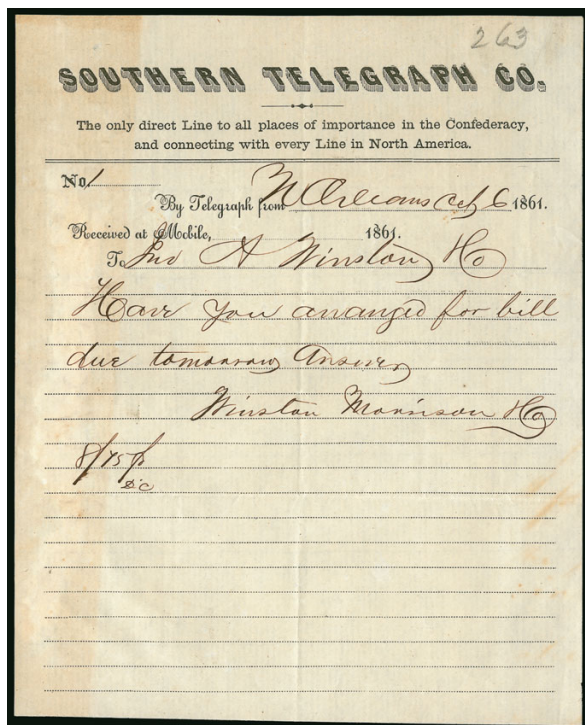 263
SOUTHERN TELEGRAPH CO.
The only direct Line to all places of importance in the Confederacy,
and connecting with every Line in North America.
No. 1
By Telegraph from N Orleans Oct 6 1861.
Received at Mobile, 1861.
To Jno A Winston & Co
Have you arranged for bill
due tomorrow Answer
Winston Morrison & Co
8/75